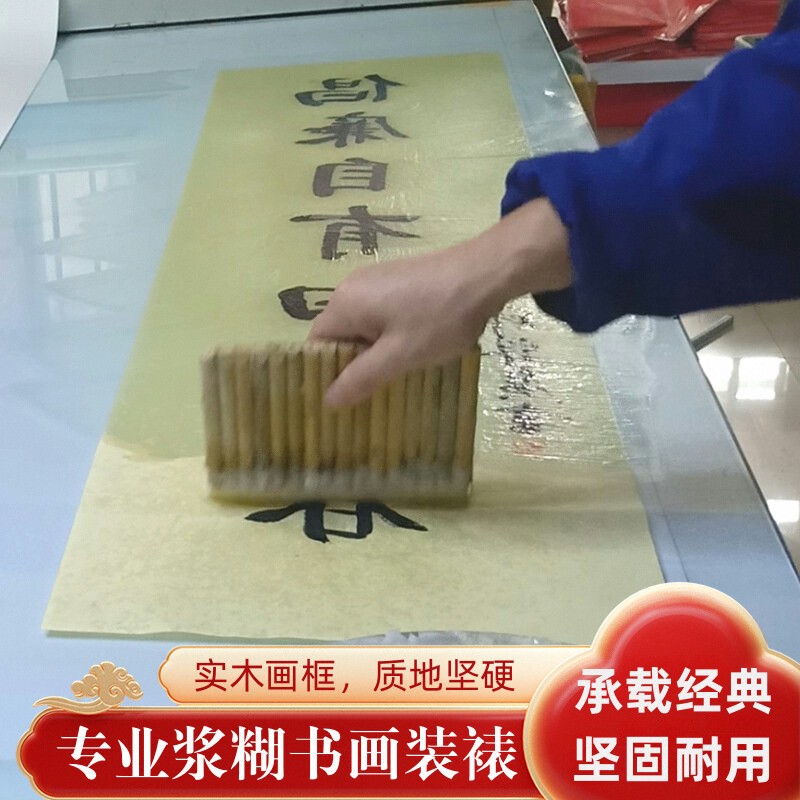 倡廉自有
实木画框，质地坚硬
专业浆糊书画装裱
承载经典
坚固耐用